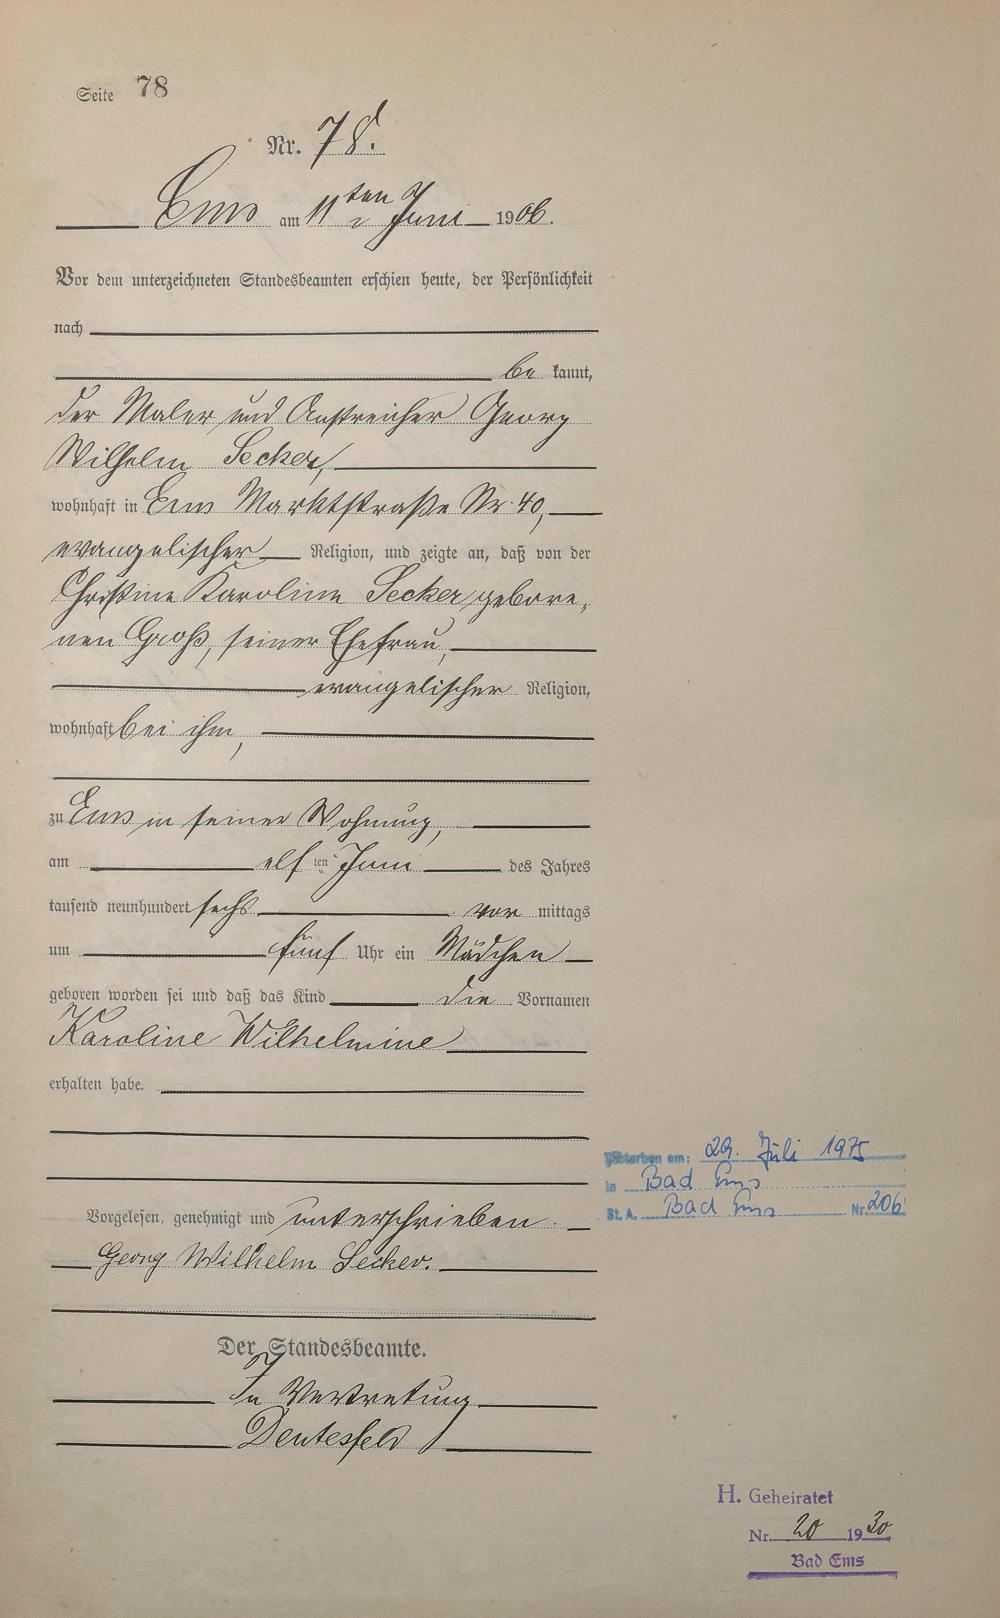 Seite 78
Nr. 78.
Ems am 11ten Juni 1906.
Vor dem unterzeichneten Standesbeamten erschien heute, der Persönlichkeit
nach
be kannt,
der Maler und Anstreicher Georg
Wilhelm Secker,
wohnhaft in Ems Marktstraße Nr. 40,
evangelischer Religion, und zeigte an, daß von der
Christine Karoline Secker gebore„
nen Groß, seiner Ehefrau,
evangelischer Religion,
wohnhaft bei ihm,
zu Ems in seiner Wohnung,
am elf ten Juni des Jahres
tausend neunhundert sechs vor mittags
um fünf Uhr ein Mädchen
geboren worden sei und daß das Kind die Vornamen
Karoline Wilhelmine
erhalten habe.
Gestorben am: 29. Juli 1975
in Bad Ems
St. A. Bad Ems Nr. 206
Vorgelesen, genehmigt und unterschrieben.
Georg Wilhelm Secker.
Der Standesbeamte.
In Vertretung
H. Geheiratet
Nr. 20 1930
Bad Ems